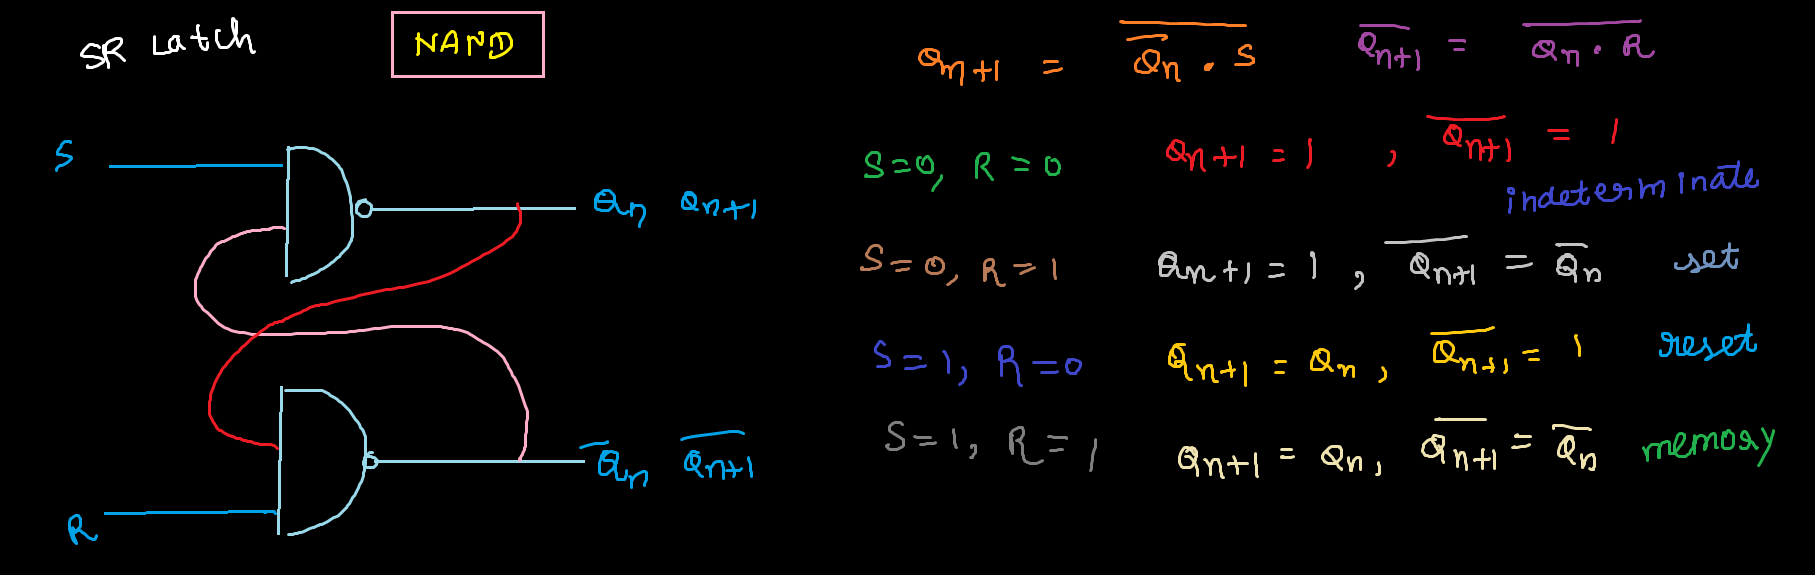 SR Latch
NAND
S
Qn Qn+1
Q̅n Q̅n+1
R
Qn+1 = \overline{Q̅n . S}
\overline{Qn+1} = \overline{Qn . R}
S=0, R=0 Qn+1 = 1 , \overline{Qn+1} = 1
indeterminate
S=0, R=1 Qn+1 = 1 , \overline{Qn+1} = Q̅n set
S=1, R=0 Qn+1 = Qn , \overline{Qn+1} = 1 reset
S=1, R=1 Qn+1 = Qn, \overline{Qn+1} = Q̅n memory